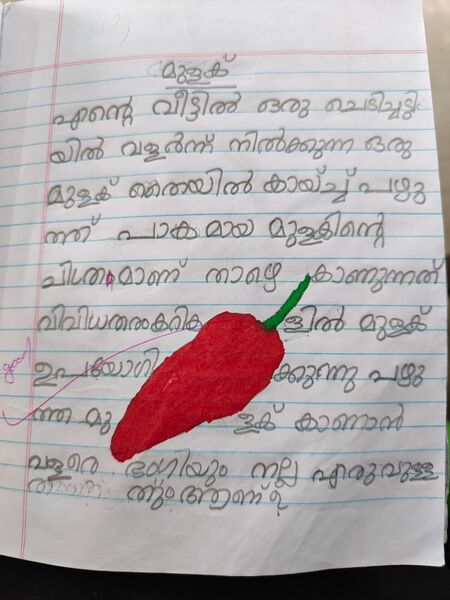 മുളക്
എന്റെ വീട്ടിൽ ഒരു ചെടിച്ചട്ടി
യിൽ വളർന്ന് നിൽക്കുന്ന ഒരു
മുളക് തൈയിൽ കായ്ച്ച് പഴു
ത്ത് പാകമായ മുളകിന്റെ
ചിത്രമാണ് താഴെ കാണുന്നത്
വിവിധതരംകറിക ളിൽ മുളക്
ഉപയോഗി ക്കുന്നു പഴു
ത്ത മു ളക് കാണാൻ
വളരെ ഭംഗിയും നല്ല എരുവുള്ള
തും ആണ്
good